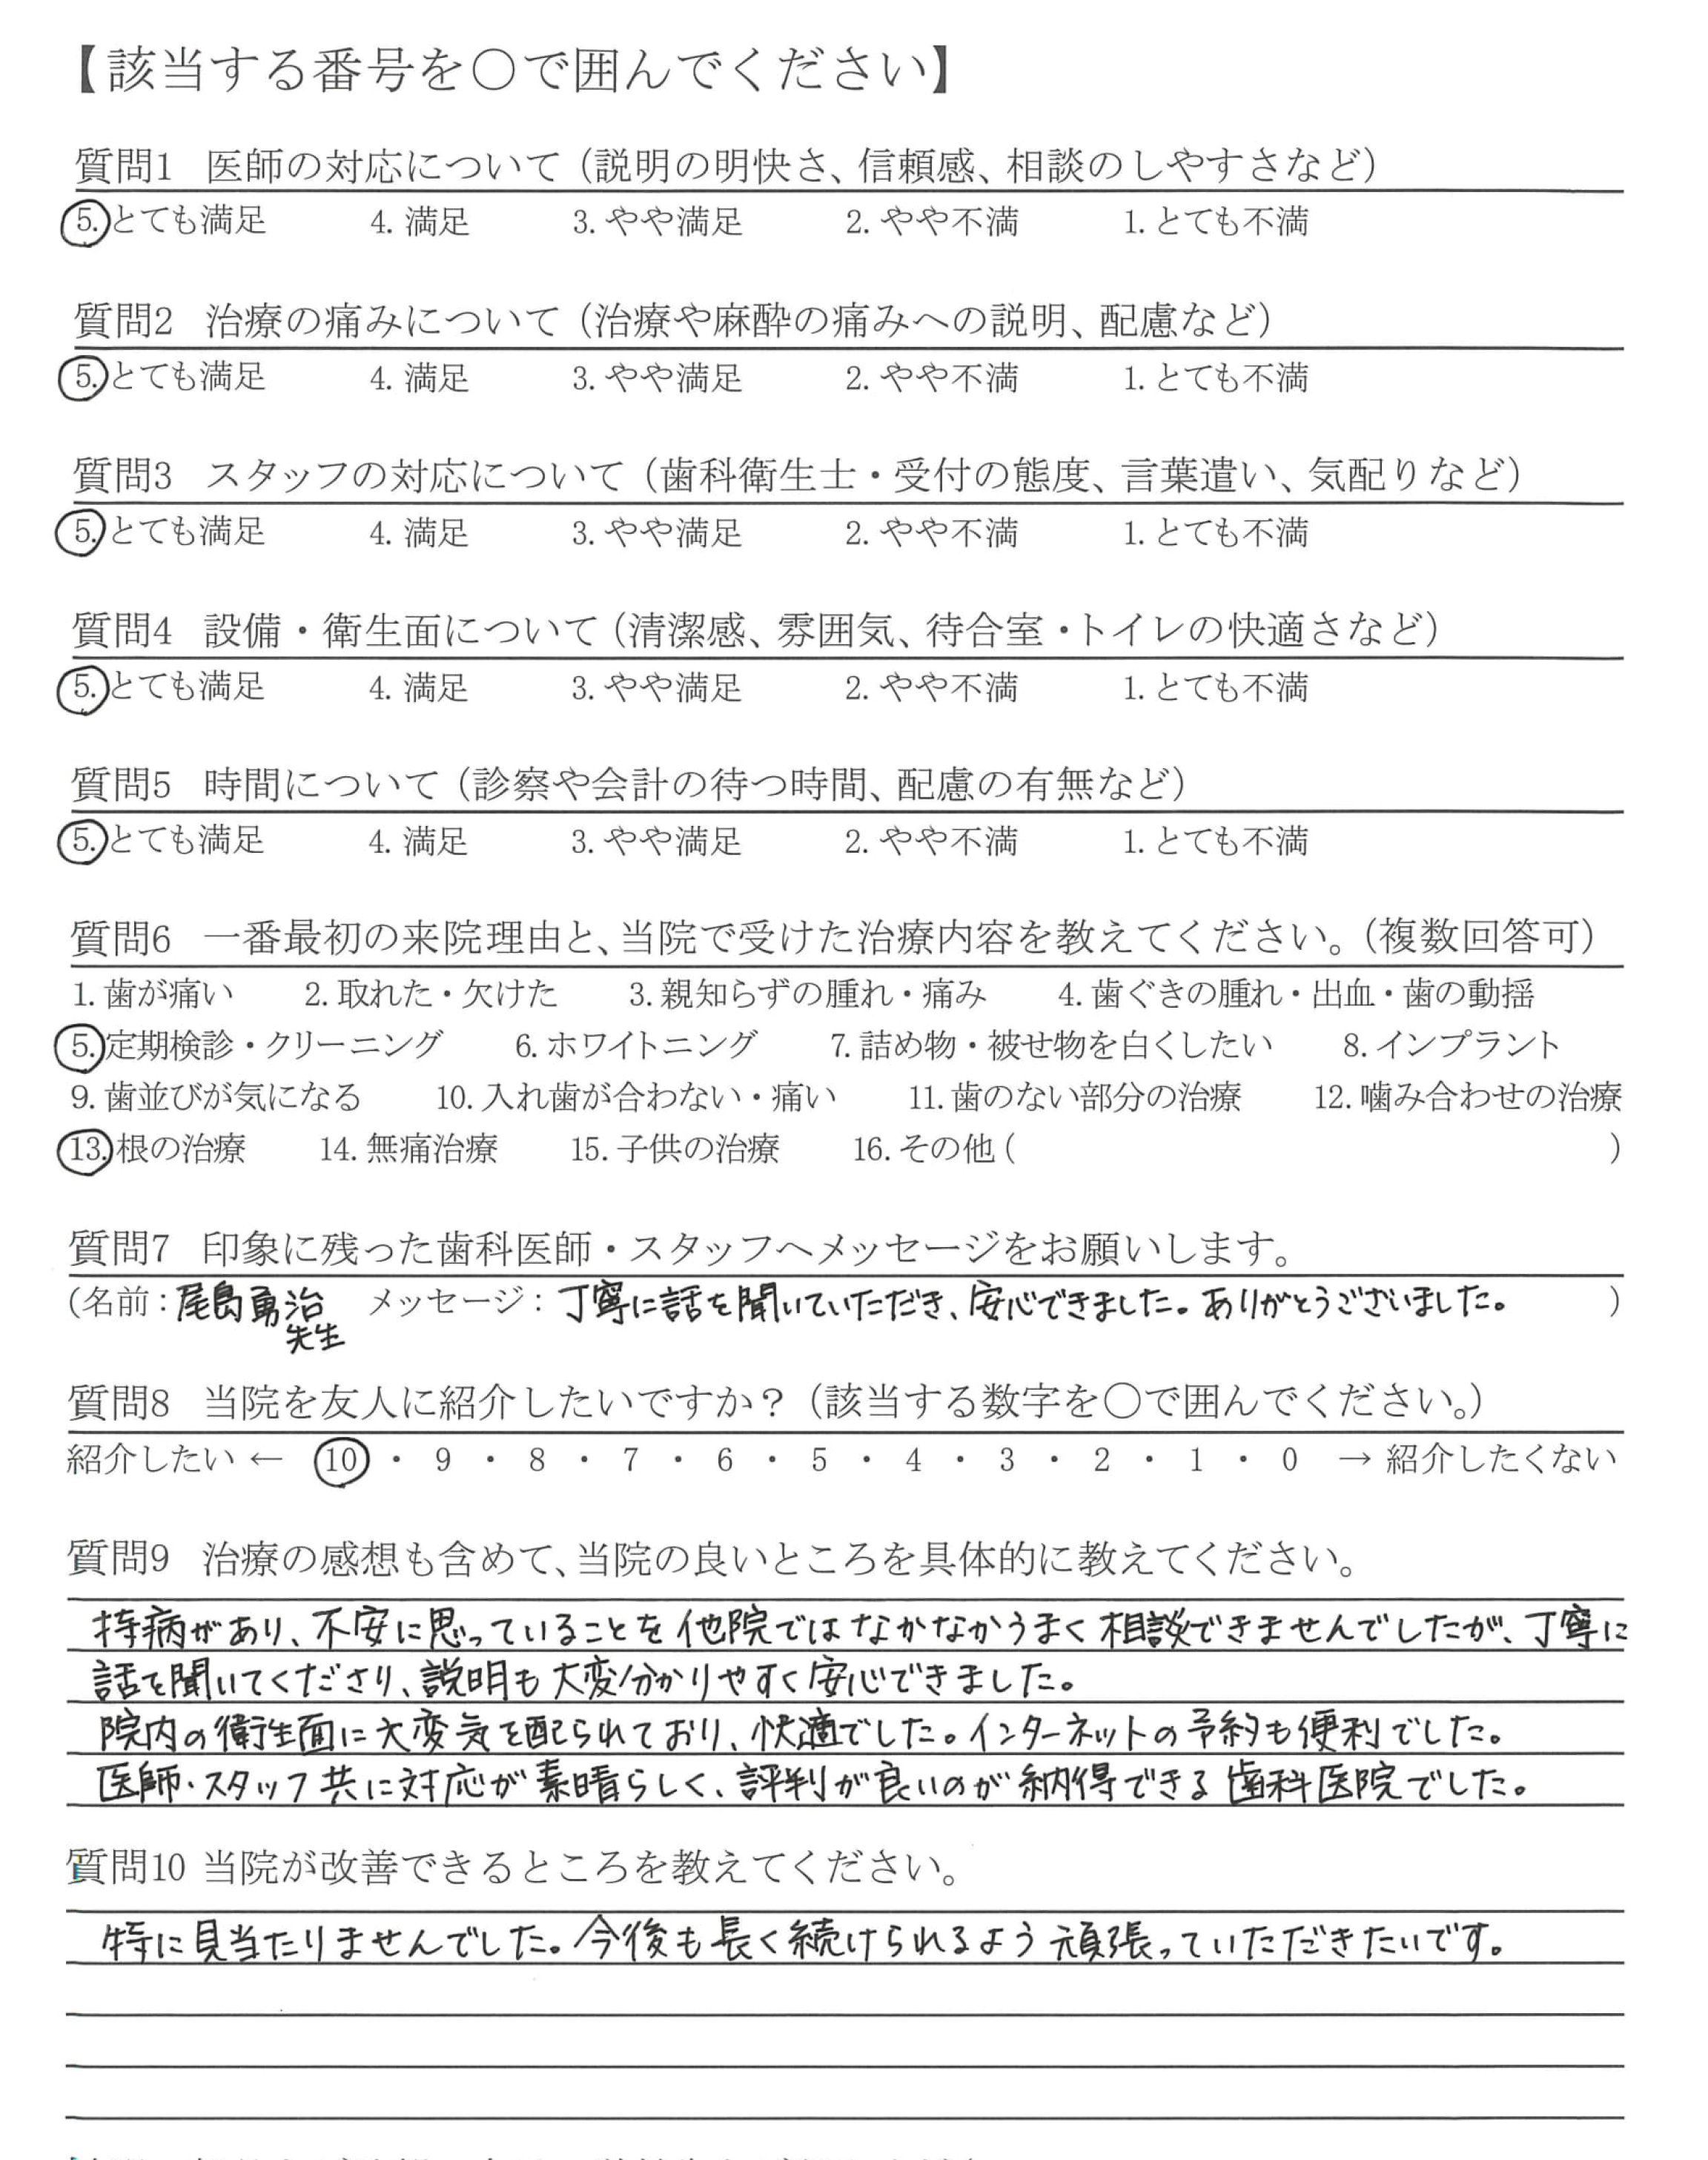 【該当する番号を〇で囲んでください】
質問1 医師の対応について（説明の明快さ、信頼感、相談のしやすさなど）
5. とても満足 4. 満足 3. やや満足 2. やや不満 1. とても不満
質問2 治療の痛みについて（治療や麻酔の痛みへの説明、配慮など）
5. とても満足 4. 満足 3. やや満足 2. やや不満 1. とても不満
質問3 スタッフの対応について（歯科衛生士・受付の態度、言葉遣い、気配りなど）
5. とても満足 4. 満足 3. やや満足 2. やや不満 1. とても不満
質問4 設備・衛生面について（清潔感、雰囲気、待合室・トイレの快適さなど）
5. とても満足 4. 満足 3. やや満足 2. やや不満 1. とても不満
質問5 時間について（診察や会計の待つ時間、配慮の有無など）
5. とても満足 4. 満足 3. やや満足 2. やや不満 1. とても不満
質問6 一番最初の来院理由と、当院で受けた治療内容を教えてください。（複数回答可）
1. 歯が痛い 2. 取れた・欠けた 3. 親知らずの腫れ・痛み 4. 歯ぐきの腫れ・出血・歯の動揺
5. 定期検診・クリーニング 6. ホワイトニング 7. 詰め物・被せ物を白くしたい 8. インプラント
9. 歯並びが気になる 10. 入れ歯が合わない・痛い 11. 歯のない部分の治療 12. 噛み合わせの治療
13. 根の治療 14. 無痛治療 15. 子供の治療 16. その他（ ）
質問7 印象に残った歯科医師・スタッフへメッセージをお願いします。
（名前：尾島勇治 メッセージ：丁寧に話を聞いていただき、安心できました。ありがとうございました。 ）
先生
質問8 当院を友人に紹介したいですか？（該当する数字を〇で囲んでください。）
紹介したい ← 10 ・ 9 ・ 8 ・ 7 ・ 6 ・ 5 ・ 4 ・ 3 ・ 2 ・ 1 ・ 0 → 紹介したくない
質問9 治療の感想も含めて、当院の良いところを具体的に教えてください。
持病があり、不安に思っていることを他院ではなかなかうまく相談できませんでしたが、丁寧に
話を聞いてくださり、説明も大変分かりやすく安心できました。
院内の衛生面に大変気を配られており、快適でした。インターネットの予約も便利でした。
医師・スタッフ共に対応が素晴らしく、評判が良いのが納得できる歯科医院でした。
質問10 当院が改善できるところを教えてください。
特に見当たりませんでした。今後も長く続けられるよう頑張っていただきたいです。